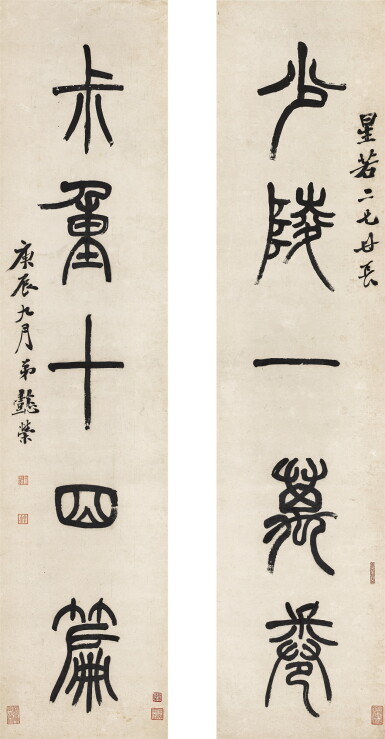 星若二兄世長
少陵一萬卷
尗重十四篇
庚辰九月弟懿榮